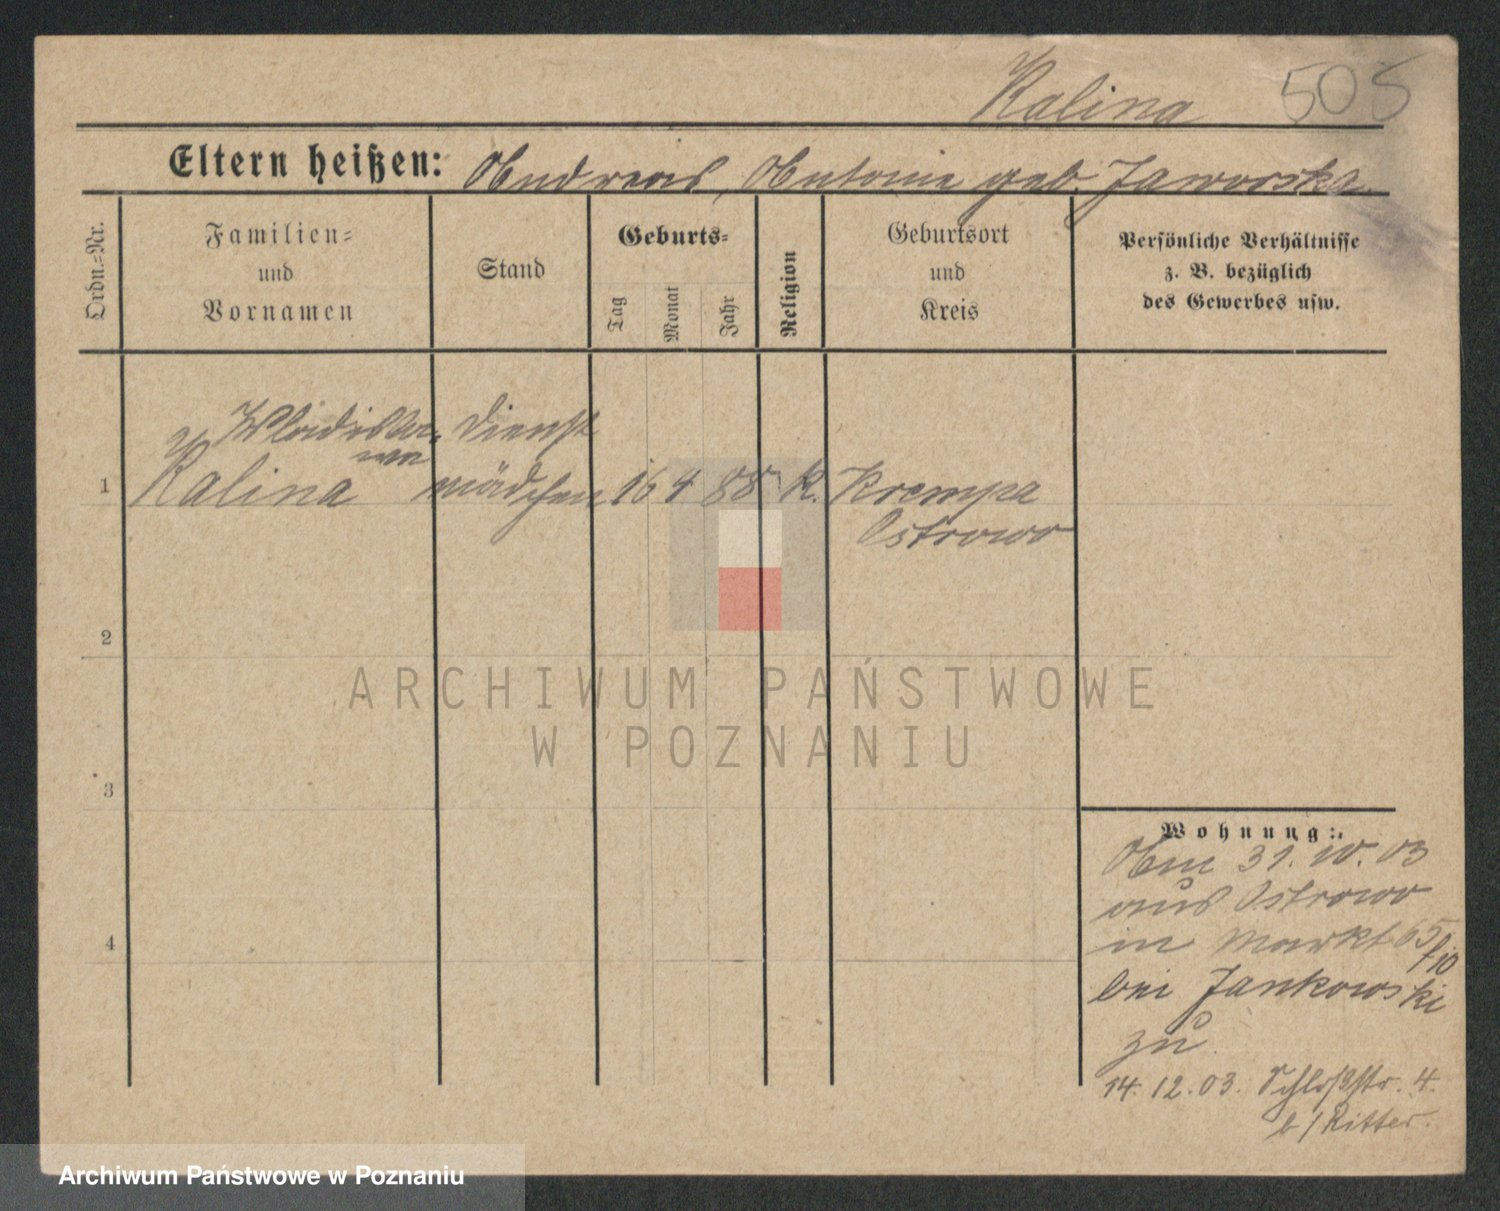 Kalina 505
Eltern heißen: Andreas, Antonie geb. Jaworska
Ordn.=Nr.
Familien=
und
Vornamen
Stand
Geburts=
Tag
Monat
Jahr
Religion
Geburtsort
und
Kreis
Persönliche Verhältnisse
z. B. bezüglich
des Gewerbes usw.
Wladisla-
wa
Dienst
1 Kalina mädchen 16 4 88 k. Krempa
Ostrowo
2
ARCHIWUM PAŃSTWOWE
W POZNANIU
3
Wohnung:
Am 31. 10. 03
aus Ostrowo
in Markt 65
9/10
bei Jankowski
zu
4
14. 12. 03. Schloßstr. 4.
b/Ritter.
Archiwum Państwowe w Poznaniu